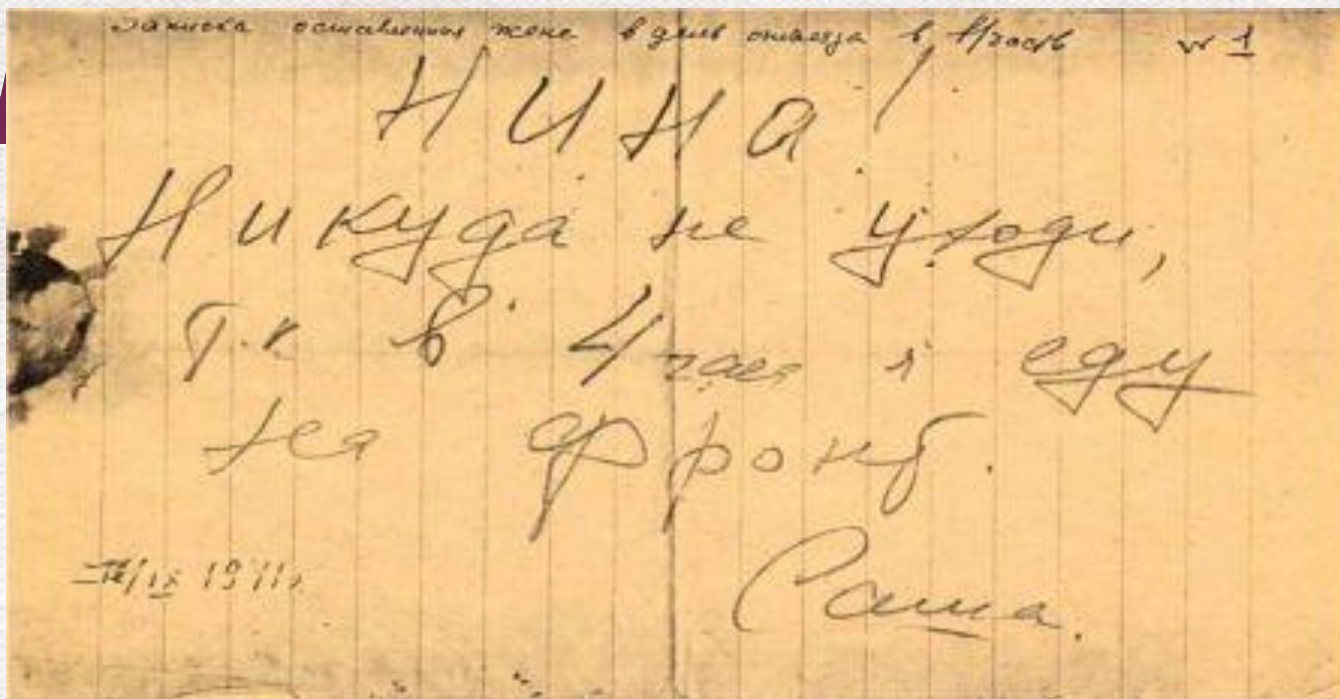 Записка оставленная жене в день отъезда в в/часть № 1
Нина!
Никуда не уходи,
т.к в 4 часа я еду
на фронт.
Саша.